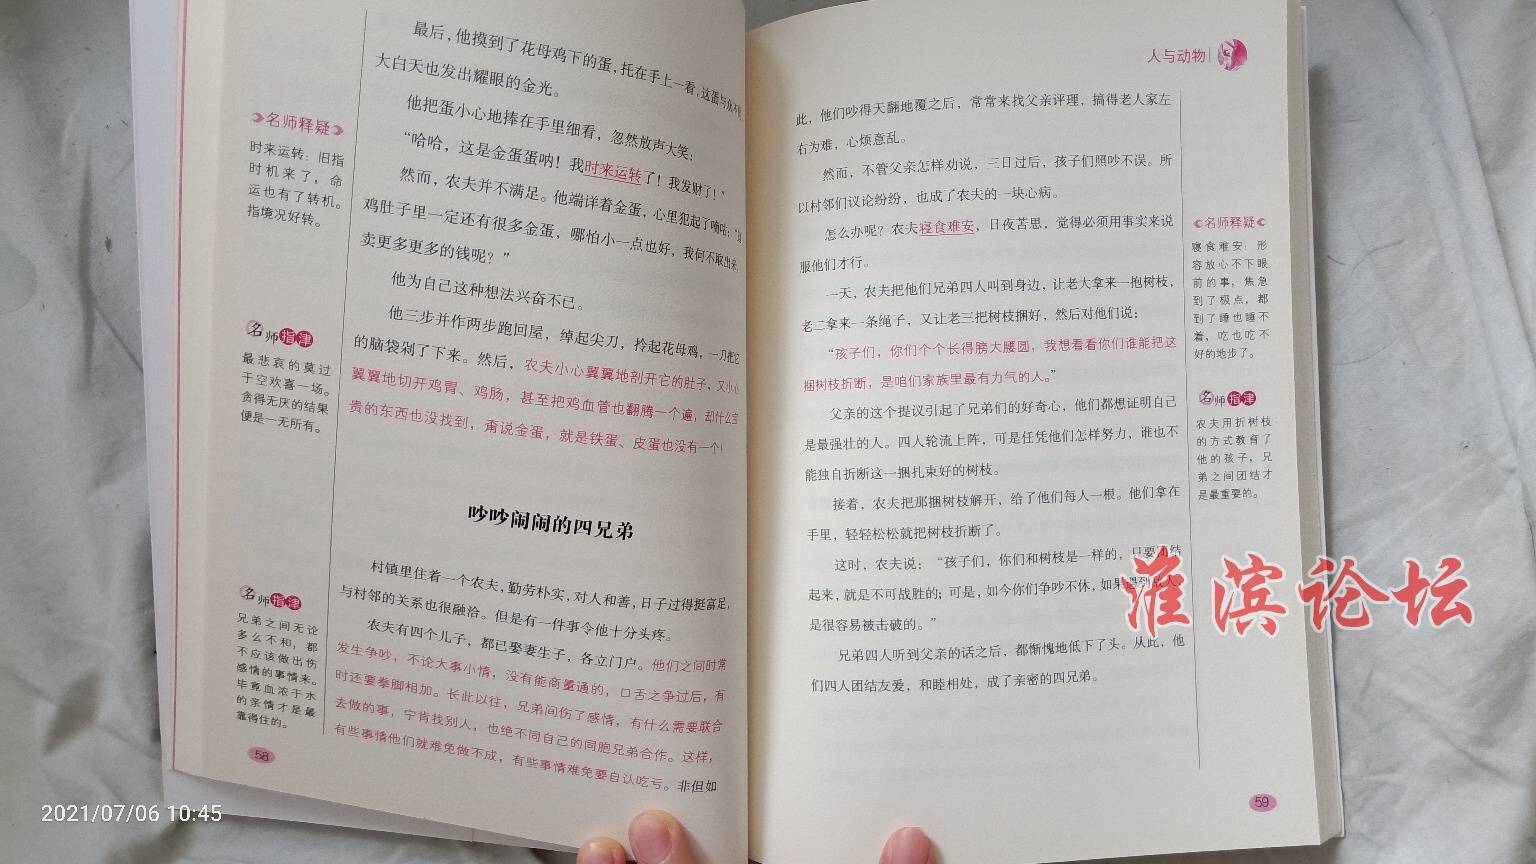 最后，他摸到了花母鸡下的蛋，托在手上一看，这蛋与众不同，
大白天也发出耀眼的金光。
他把蛋小心地捧在手里细看，忽然放声大笑：
“哈哈，这是金蛋蛋呐！我时来运转了！我发财了！”
然而，农夫并不满足。他端详着金蛋，心里犯起了嘀咕：“
鸡肚子里一定还有很多金蛋，哪怕小一点也好，我何不取出来，
卖更多更多的钱呢？”
他为自己这种想法兴奋不已。
他三步并作两步跑回屋，绰起尖刀，拎起花母鸡，一刀把它
的脑袋剁了下来。然后，农夫小心翼翼地剖开它的肚子，又小心
翼翼地切开鸡胃、鸡肠，甚至把鸡血管也翻腾一个遍，却什么宝
贵的东西也没找到，甭说金蛋，就是铁蛋、皮蛋也没有一个！
名师释疑
时来运转：旧指
时机来了，命
运也有了转机。
指境况好转。
名师指津
最悲哀的莫过
于空欢喜一场。
贪得无厌的结果
便是一无所有。
吵吵闹闹的四兄弟
村镇里住着一个农夫，勤劳朴实，对人和善，日子过得挺富足，
与村邻的关系也很融洽。但是有一件事令他十分头疼。
农夫有四个儿子，都已娶妻生子，各立门户。他们之间时常
发生争吵，不论大事小情，没有能商量通的，口舌之争过后，有
时还要拳脚相加。长此以往，兄弟间伤了感情，有什么需要联合
去做的事，宁肯找别人，也绝不同自己的同胞兄弟合作。这样，
有些事情他们就难免做不成，有些事情难免要自认吃亏。非但如
名师指津
兄弟之间无论
多么不和，都
不应该做出伤
感情的事情来。
毕竟血浓于水
的亲情才是最
靠得住的。
58
人与动物
此，他们吵得天翻地覆之后，常常来找父亲评理，搞得老人家左
右为难，心烦意乱。
然而，不管父亲怎样劝说，三日过后，孩子们照吵不误。所
以村邻们议论纷纷，也成了农夫的一块心病。
怎么办呢？农夫寝食难安，日夜苦思，觉得必须用事实来说
服他们才行。
一天，农夫把他们兄弟四人叫到身边，让老大拿来一抱树枝，
老二拿来一条绳子，又让老三把树枝捆好，然后对他们说：
“孩子们，你们个个长得膀大腰圆，我想看看你们谁能把这
捆树枝折断，是咱们家族里最有力气的人。”
父亲的这个提议引起了兄弟们的好奇心，他们都想证明自己
是最强壮的人。四人轮流上阵，可是任凭他们怎样努力，谁也不
能独自折断这一捆扎束好的树枝。
接着，农夫把那捆树枝解开，给了他们每人一根。他们拿在
手里，轻轻松松就把树枝折断了。
这时，农夫说：“孩子们，你们和树枝是一样的，只要团结
起来，就是不可战胜的；可是，如今你们争吵不休，如果遇到敌人，
是很容易被击破的。”
兄弟四人听到父亲的话之后，都惭愧地低下了头。从此，他
们四人团结友爱，和睦相处，成了亲密的四兄弟。
名师释疑
寝食难安：形
容放心不下眼
前的事，焦急
到了极点，都
到了睡也睡不
着，吃也吃不
好的地步了。
名师指津
农夫用折树枝
的方式教育了
他的孩子，兄
弟之间团结才
是最重要的。
59
淮滨论坛
2021/07/06 10:45